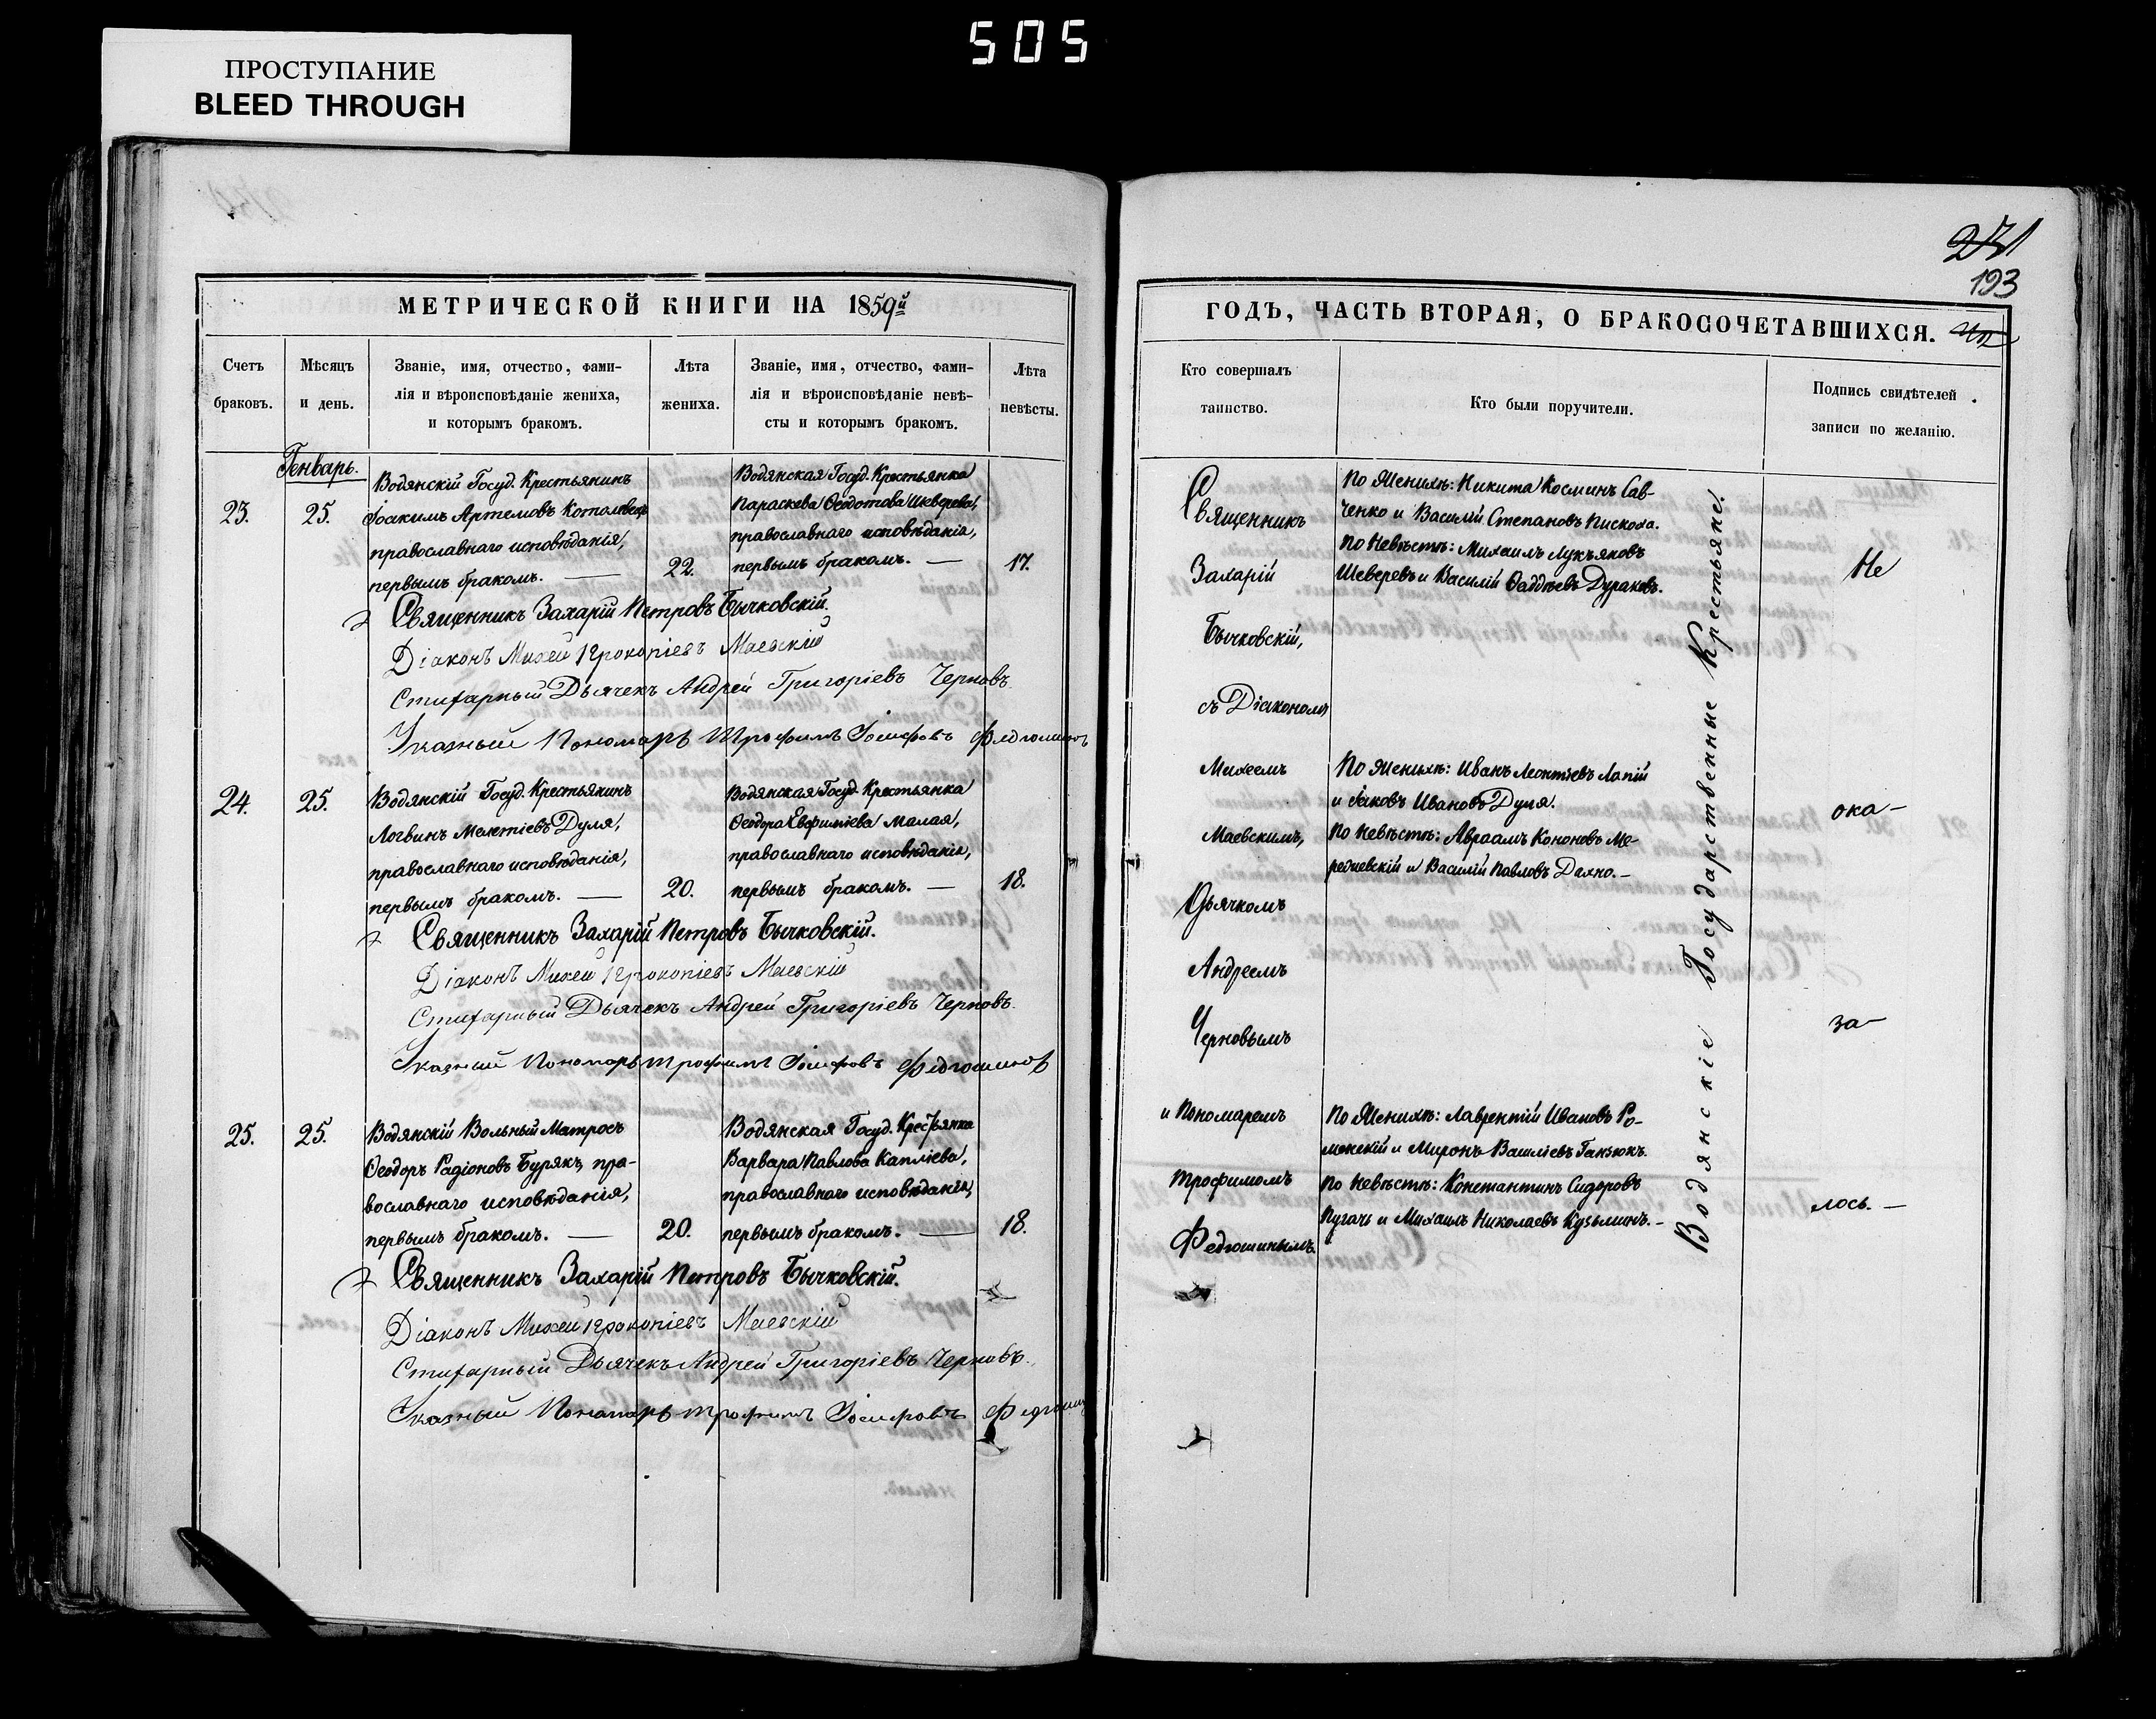 505
ПРОСТУПАНИЕ
BLEED THROUGH
231
193
МЕТРИЧЕСКОЙ КНИГИ НА 1859й
Счетъ браковъ.
Мѣсяцъ и день.
Званіе, имя, отчество, фами-
лія и вѣроисповѣданіе жениха,
и которымъ бракомъ.
Лѣта жениха.
Званіе, имя, отчество, фами-
лія и вѣроисповѣданіе невѣ-
сты и которымъ бракомъ.
Лѣта невѣсты.
Генварь.
23.
25.
Водянскій Госуд. Крестьянинъ
Іоакимъ Артемовъ
православнаго исповѣданія,
первымъ бракомъ. —
22.
Водянская Госуд. Крестьянка
Параскева Ѳеодотова Шеверева,
православнаго исповѣданія,
первымъ бракомъ. —
17.
Священникъ Захарій Петровъ Бычковскій.
Діаконъ Михей Прокопіевъ Маевскій
Стихарный Дьячекъ Андрей Григоріевъ Черновъ.
Указный Пономарь Трофимъ Іосифовъ Федюшинъ
24.
25.
Водянскій Госуд. Крестьянинъ
Логвинъ Мелетіевъ Дуля,
православнаго исповѣданія,
первымъ бракомъ. —
20.
Водянская Госуд. Крестьянка
Ѳеодора Евфиміева Малая,
православнаго исповѣданія,
первымъ бракомъ. —
18.
Священникъ Захарій Петровъ Бычковскій.
Діаконъ Михей Прокопіевъ Маевскій
Стихарный Дьячекъ Андрей Григоріевъ Черновъ.
Указный Пономарь Трофимъ Іосифовъ Федюшинъ
25.
25.
Водянскій Вольный Матросъ
Ѳеодоръ Радіоновъ Бурякъ, пра-
вославнаго исповѣданія,
первымъ бракомъ. —
20.
Водянская Госуд. Крестьянка
Варвара Павлова Капліева,
православнаго исповѣданія,
первымъ бракомъ. —
18.
Священникъ Захарій Петровъ Бычковскій.
Діаконъ Михей Прокопіевъ Маевскій
Стихарный Дьячекъ Андрей Григоріевъ Черновъ.
Указный Пономарь Трофимъ Іосифовъ
ГОДЪ, ЧАСТЬ ВТОРАЯ, О БРАКОСОЧЕТАВШИХСЯ.
Кто совершалъ таинство.
Кто были поручители.
Подпись свидѣтелей
записи по желанію.
Священникъ
Захарій
Бычковскій,
съ Діакономъ
Михеемъ
Маевскимъ,
Дьячкомъ
Андреемъ
Черновымъ
и Пономаремъ
Трофимомъ
Федюшинымъ.
По Женихѣ: Никита Косминъ Сав-
ченко и Василій Степановъ Пискоха.
По Невѣстѣ: Михаилъ Лукъяновъ
Шеверевъ и Василій Ѳаддѣевъ Дураковъ.
По Женихѣ: Иванъ Леонтіевъ Лапій
и Іаковъ Ивановъ Дуля.
По Невѣстѣ: Авраамъ Кононовъ Ме-
и Василій Павловъ Дахно. —
По Женихѣ: Лаврентій Ивановъ Ро-
менскій и Миронъ Василіевъ Ганзюкъ.
По Невѣстѣ: Константинъ Сидоровъ
Пугачъ и Михаилъ Николаевъ Кузьминъ. —
Водянскіе Государственные Крестьяне.
Не
ока-
за-
лось. —